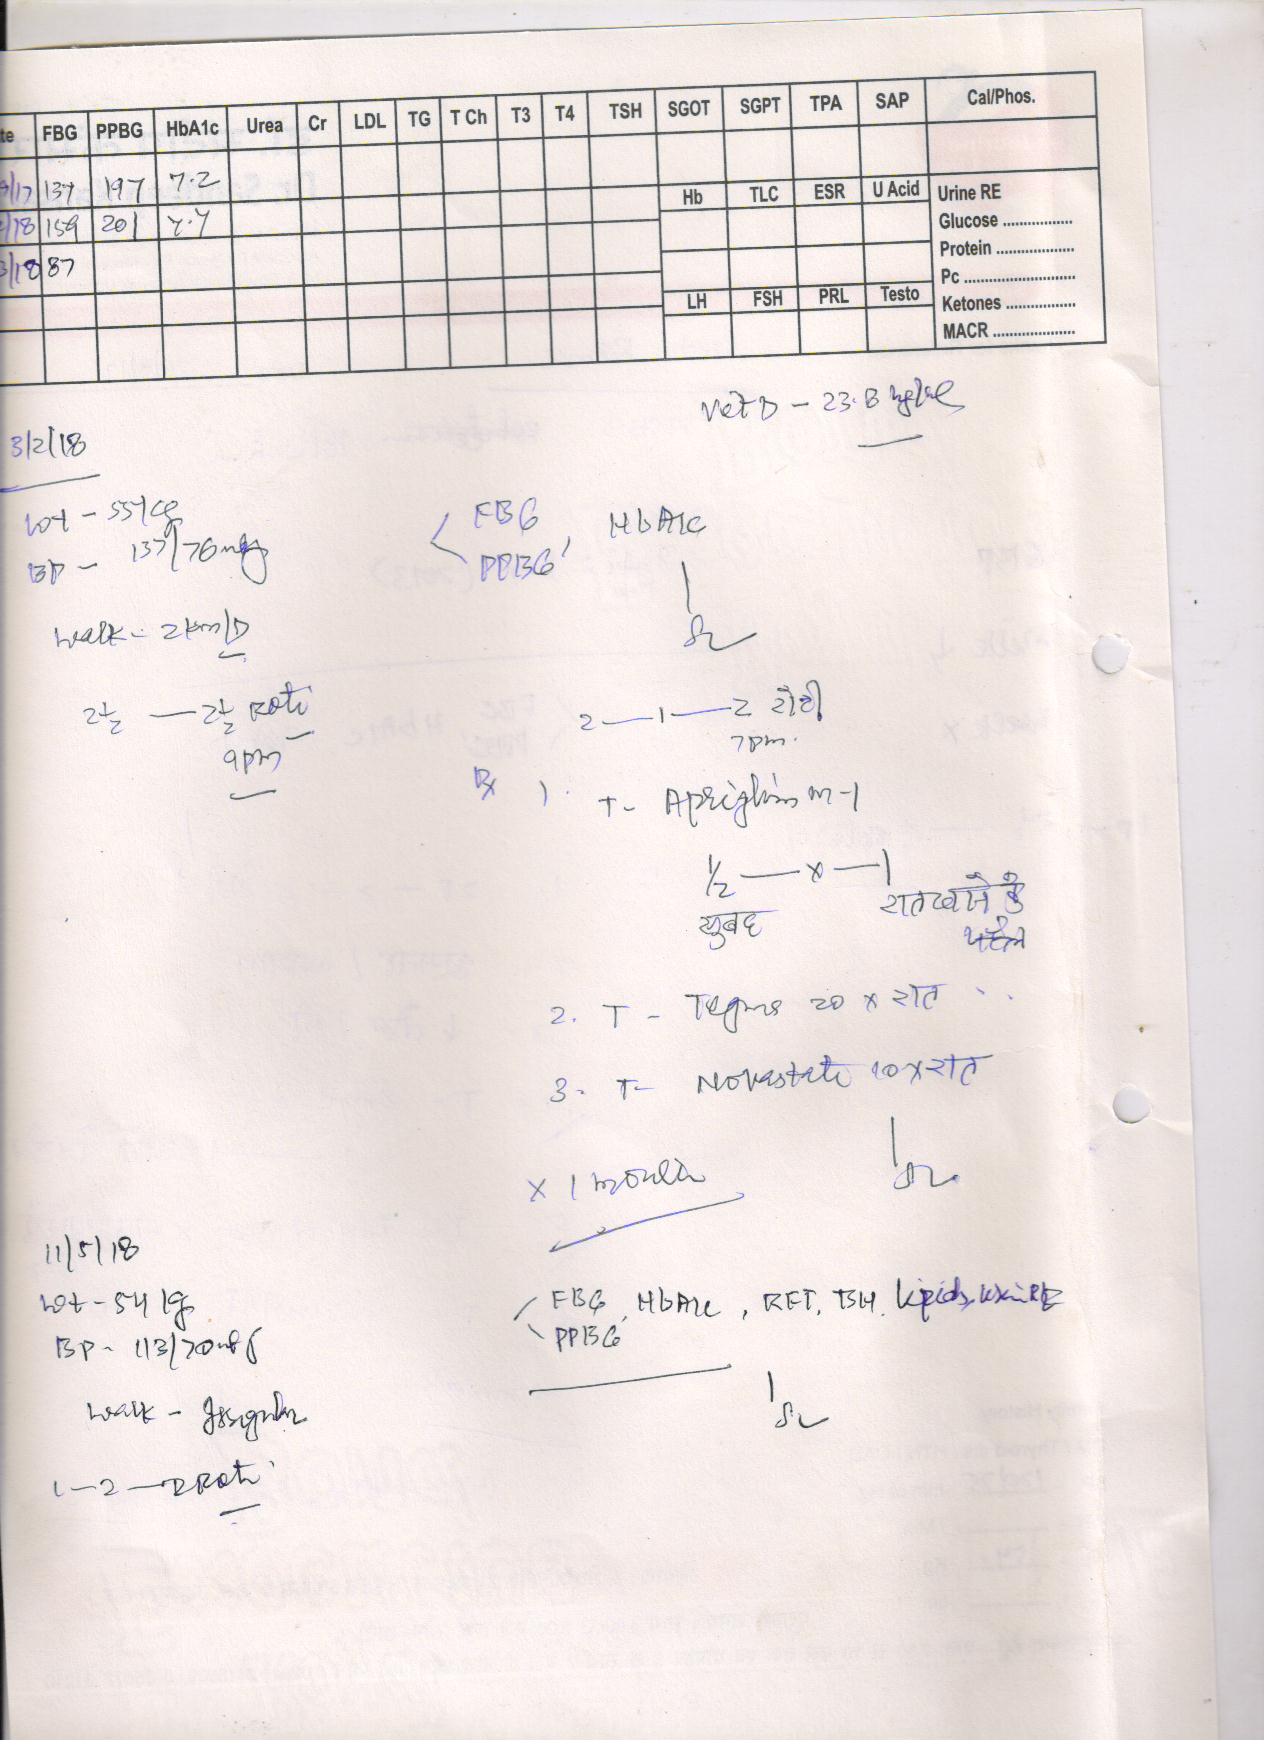 te FBG PPBG HbA1c Urea Cr LDL TG T Ch T3 T4 TSH SGOT SGPT TPA SAP Cal/Phos.
/17 137 197 7.2
Hb TLC ESR U Acid Urine RE
/18 159 201
Glucose ................
Protein ...................
3/18 87
Pc ...........................
LH FSH PRL Testo Ketones .................
MACR ....................
Vit D - 23.8
3/2/18
Wt - 55 kg
BP - 137/76
FBG HbA1c
PPBG
Walk - 2km/D
2½ — 2½ Roti
9pm
2 — 1 — 2 रोटी
7pm.
Rx 1. T- m-1
½ — x — 1
सुबह रात खाने के
पहले
2. T - 20 x रात
3. T- Novastat 10 x रात
x 1 month
11/5/18
Wt - 54 kg
BP - 113/70
FBG, HbA1c, RFT, TSH, Lipids, Urine RE
PPBG
Walk - Irregular
1 — 2 — 2 Roti